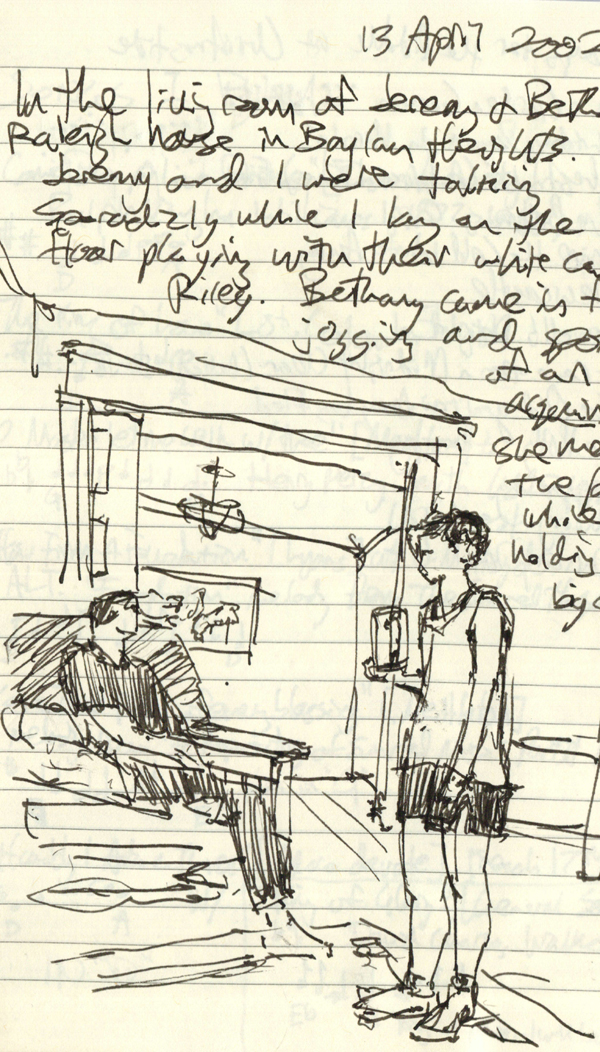 13 April 2002
In the living room of Jeremy & Beth
Raleigh house in Boylan Heights.
Jeremy and I were talking
sporadically while I lay on the
floor playing with their white ca
Riley. Bethany came in f
jogging and spo
of an
acquain
she me
the p
while
holding